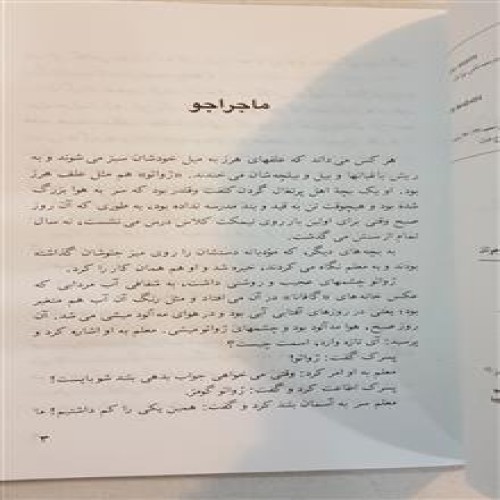 ماجراجو
هر کس می داند که علفهای هرز به میل خودشان سبز می شوند و به
ریش باغبانها و بیل و بیلچه‌شان می خندند. «ژوائو» هم مثل علف هرز
بود. او یک بچهٔ اهل پرتغال گردن کلفت وقلدر بود که سر به هوا بزرگ
شده بود و هیچوقت تن به قید و بند مدرسه نداده بود، به طوری که آن روز
صبح وقتی برای اولین بار روی نیمکت کلاس درس می نشست، نه سال
تمام از سنش می گذشت.
به بچه‌های دیگر، که مؤدبانه دستشان را روی میز جلوشان گذاشته
بودند و به معلم نگاه می کردند، خیره شد و او هم همان کار را کرد.
ژوائو چشمهای عجیب و روشنی داشت، به شفافی آب مردابی که
عکس خانه‌های «گافانا» در آن می افتاد و مثل رنگ آن آب هم متغیر
بود؛ یعنی در روزهای آفتابی آبی بود و در هوای مه‌آلود میشی می شد. آن
روز صبح، هوا مه‌آلود بود و چشمهای ژوائو میشی. معلم به او اشاره کرد و
پرسید: آی تازه وارد، اسمت چیست؟
پسرک گفت: ژوائو!
معلم به او امر کرد: وقتی می خواهی جواب بدهی بلند شو بایست!
پسرک اطاعت کرد و گفت: ژوائو گومز.
معلم سر به آسمان بلند کرد و گفت: همین یکی را کم داشتیم! ما
۳